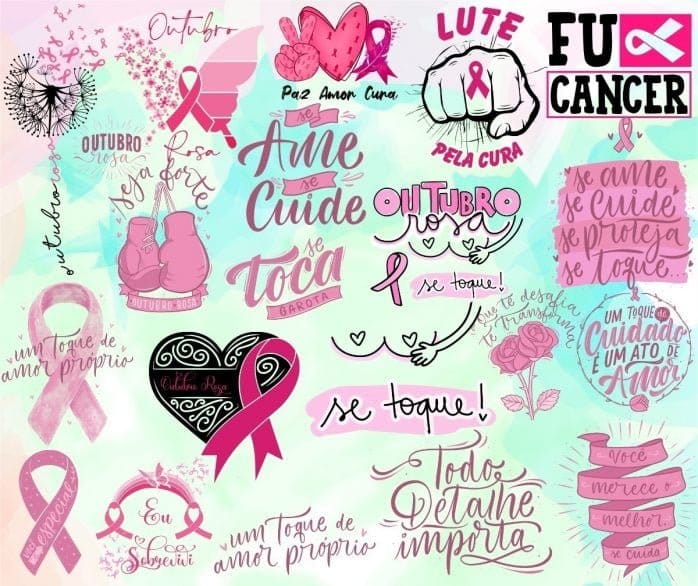 Outubro
Rosa
outubro rosa
Paz Amor Cura
LUTE
PELA CURA
FU
CANCER
OUTUBRO
rosa
seja forte
OUTUBRO ROSA
se
Ame
se
Cuide
se
Toca
GAROTA
OUTUBRO
rosa
se toque!
se ame
se cuide
se proteja
se toque...
um Toque de
amor próprio
Outubro Rosa
se toque!
que te desafia
te transforma
UM TOQUE de
Cuidado
É UM ATO de
Amor
especial
Eu
Sobrevivi
um Toque de
amor próprio
Todo
Detalhe
importa
Você
merece o
melhor,
se cuida